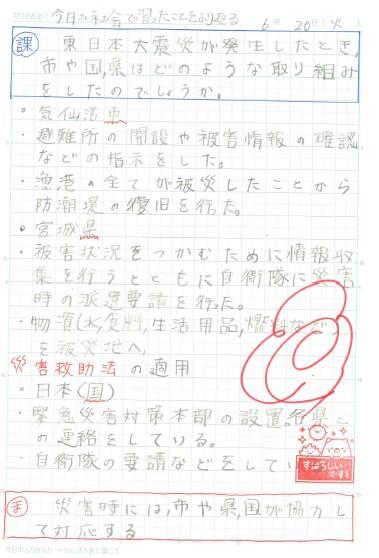 今日の社会で習ったことをふり返る 6月20日(火)
課 東日本大震災が発生したとき、
市や国、県はどのような取り組み
をしたのでしょうか。
・気仙沼市
・避難所の開設や被害情報の確認
などの指示をした。
・漁港の全てが被災したことから
防潮堤の復旧を行った。
・宮城県
・被害状況をつかむために情報収
集を行うとともに自衛隊に災害
時の派遣要請を行った。
・物資(水,食料,生活用品,燃料など)
を被災地へ
災害救助法の適用
・日本(国)
・緊急災害対策本部の設置。各県と
の連絡をしている。
・自衛隊の要請などをしてい
すばらしい
です!
ま 災害時には,市や県,国が協力し
て対応する